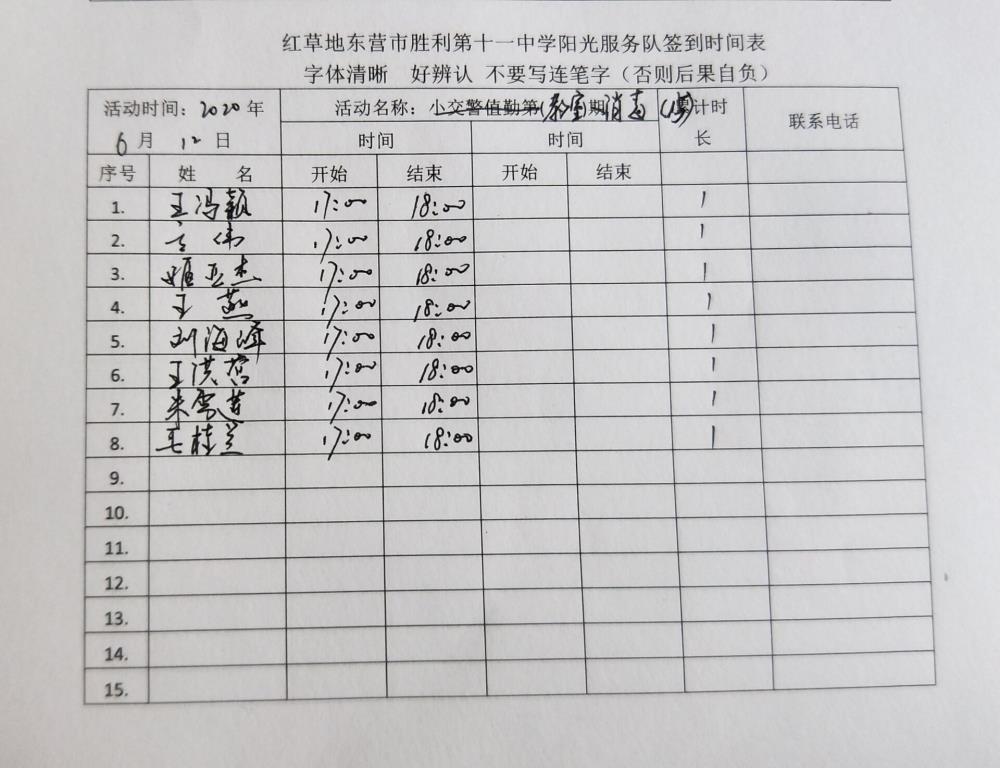 红草地东营市胜利第十一中学阳光服务队签到时间表
字体清晰 好辨认 不要写连笔字（否则后果自负）
活动时间：2020年 6月12日 活动名称：小交警值勤第( 期 教室消毒 计时长 联系电话
时间 时间
序号 姓名 开始 结束 开始 结束
1. 王冯颖 17:00 18:00 1
2. 伟 17:00 18:00 1
3. 姬亚杰 17:00 18:00 1
4. 王燕 17:00 18:00 1
5. 刘海峰 17:00 18:00 1
6. 王洪营 17:00 18:00 1
7. 朱雪莲 17:00 18:00 1
8. 毛桂兰 17:00 18:00 1
9.
10.
11.
12.
13.
14.
15.